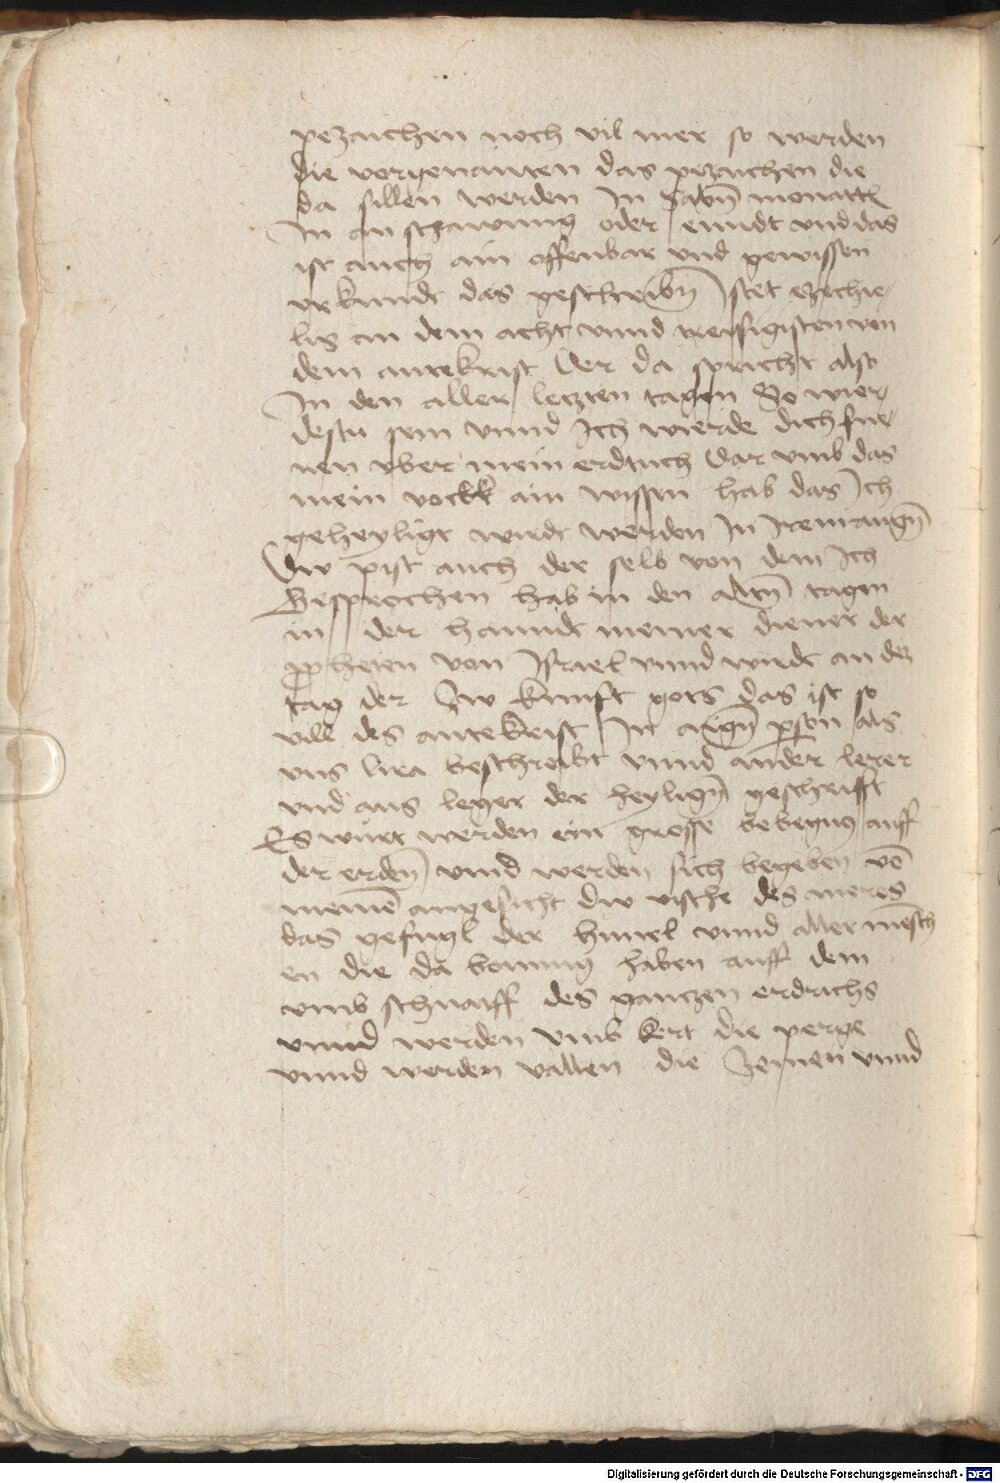 pezaichen noch vil mer so werden
die vorgenanten das pezaichen die
da sillen werden In sabn̄ monatt
In an schawung oder eundt vnd das
ist auch ain offenbar vnd gewissen
vrkundt das geschribn̄ stet ezechie
lis an dem acht vnnd treissigisten von
dem antekrist Der da spricht also
In den aller letzten tagen So wier
destu sein vnnd Ich wierde dich fue
ren vber mein erdtrich Dar vmb das
mein volkk ain wissen hab das Ich
geheyligt wirdt werden In
Dw pist auch der selb von dem Ich
Gesprochen hab in den altn̄ tagen
in der hanndt meiner diener der
propheten von Israel vnnd wirdt an dez
tag der Zw kunfft gots das ist so
vill des antekrist In aygn̄ person als
vns lira beschreibt vnnd ander lerer
vnd aus leger der heylign̄ geschrifft
Es wurt werden ein grosse bebegng auff
der erden vnnd werden sich begeben vō
meinē angesicht dw vische des meres
das gefugl der himel vnnd aller mensch
en die da bonung haben auff dem
vmb schwaiff des ganczen erdrichs
vnnd werden vmb kert die perge
vnnd werden vallen die Zeinen vnnd
Digitalisierung gefördert durch die Deutsche Forschungsgemeinschaft - DFG